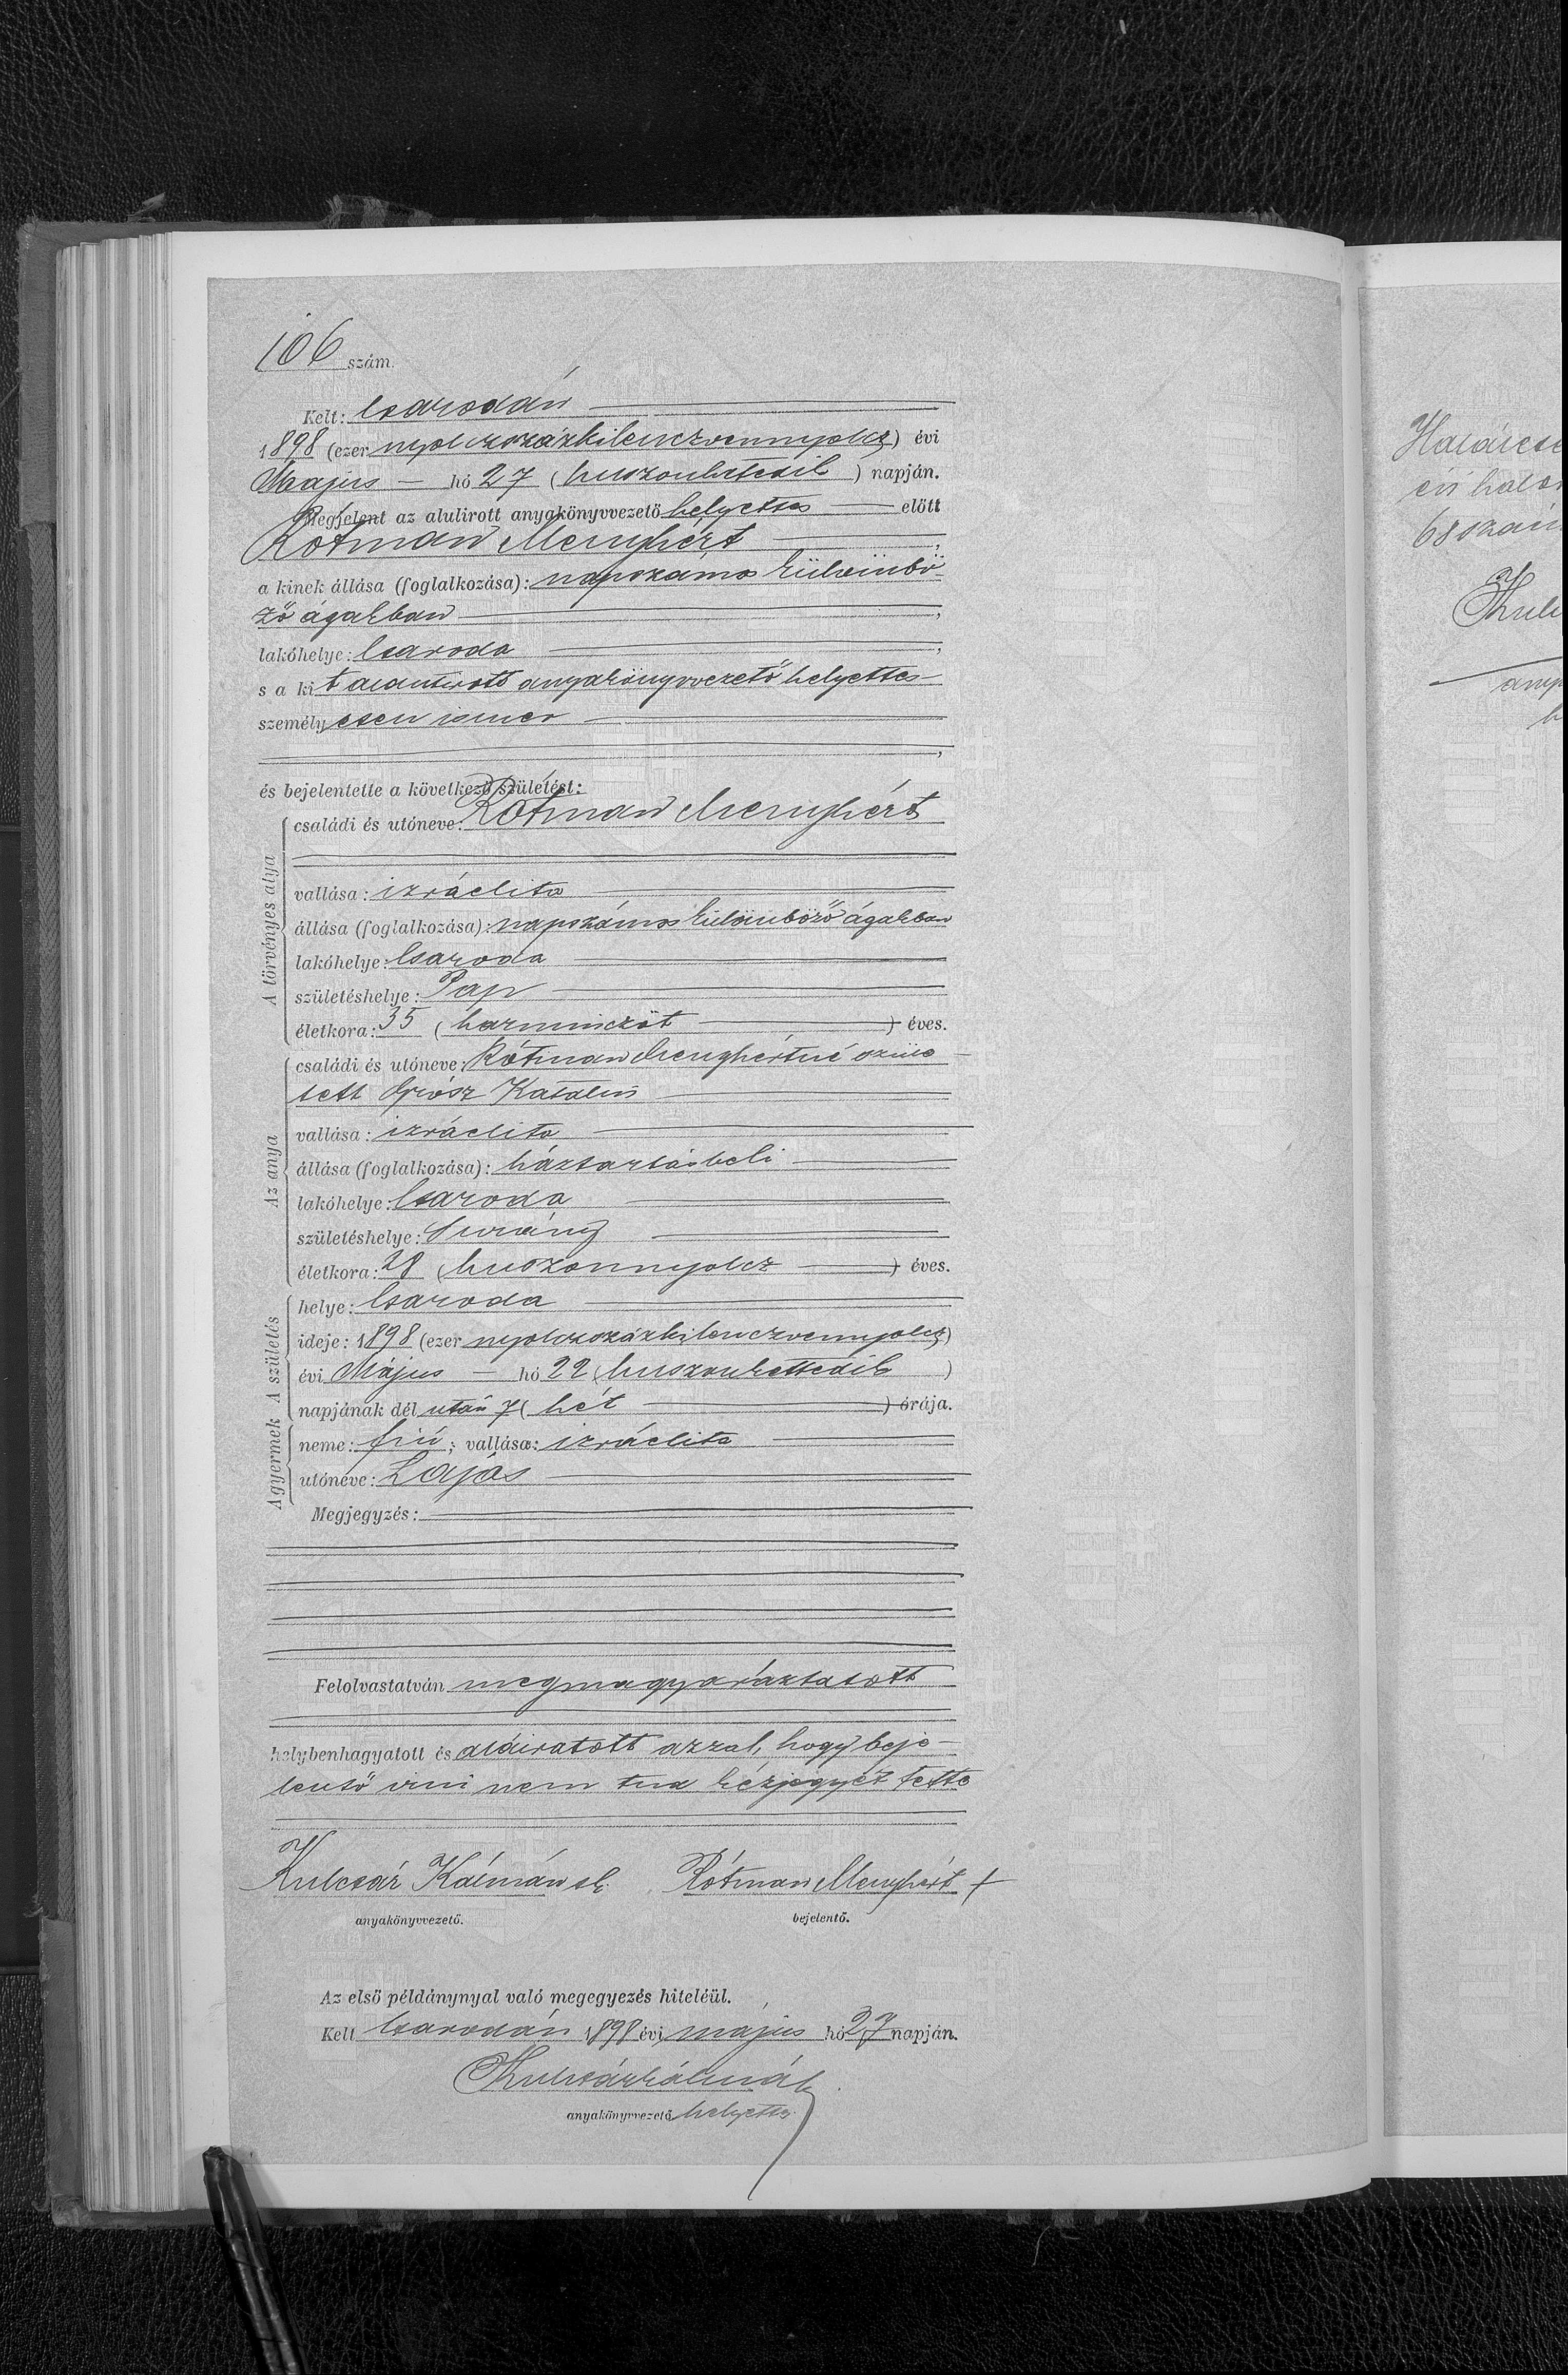 106 szám.
Kelt: Csarodán
1898 (ezer nyolczszázkilenczvennyolcz) évi
Majus — hó 27 (huszonhetedik) napján.
Megjelent az alulirott anyakönyvvezető helyettes előtt
Rótman Menyhért,
a kinek állása (foglalkozása): napszámos különbö-
ző ágakban,
lakóhelye: Csaroda,
s a kit alantirott anyakönyvvezető helyettes
személyesen ismer
,
és bejelentette a következő születést:
A törvényes atya
családi és utóneve: Rótman Menyhért
vallása: izráelita
állása (foglalkozása): napszámos különböző ágakban
lakóhelye: Csaroda
születéshelye: Pap
életkora: 35 (harminczöt) éves.
Az anya
családi és utóneve: Rótman Menyhértné szüle-
tett Grósz Katalin
vallása: izráelita
állása (foglalkozása): háztartásbeli
lakóhelye: Csaroda
születéshelye: Surány
életkora: 28 (huszonnyolcz) éves.
A születés
helye: Csaroda
ideje: 1898 (ezer nyolczszázkilenczvennyolcz)
évi Május — hó 22 (huszonkettedik)
napjának dél után 7 (hét) órája.
A gyermek
neme: fiú; vallása: izráelita
utóneve: Lajos
Megjegyzés:
Felolvastatván megmagyaráztatott
helybenhagyatott és aláiratott azzal, hogy beje-
lentő irni nem tud kézjegyét tette
Kulcsár Kálmán sk. Rótman Menyhért +
anyakönyvvezető. bejelentő.
Az első példánynyal való megegyezés hiteléül.
Kelt Csarodán 1898 évi május hó 27 napján.
Kulcsár Kálmán
anyakönyvvezető helyettes.
évi